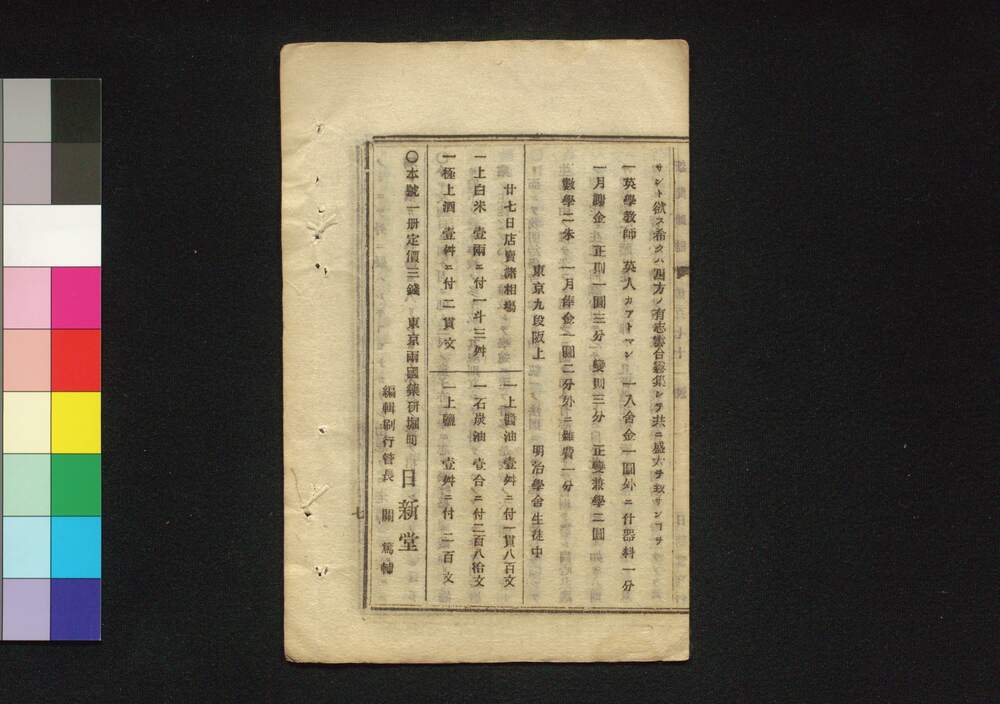 サント欲ス希クハ四方ノ有志雲合霧集シテ共ニ盛大ヲ致サンコヲ
一英學教師 英人カアトマン 一入舍金一圓外ニ什器料一分
一月謝金 正則一圓三分 變則三分 正變兼學二圓
數學二朱 一月俸金一圓二分外ニ雖費一分
東京九段阪上 明治學舍生徒中
廿七日店賣諸相場
一上白米 壹兩ニ付一斗三舛
一極上酒 壹舛ニ付二貫文
一上醬油 壹舛ニ付一貫八百文
一石炭油 壹合ニ付二百八拾文
一上鹽 壹舛ニ付 二百文
〇本號一册定價三錢 東京兩國藥研堀町 日新堂
編輯刷行管長 關 篤輔
七